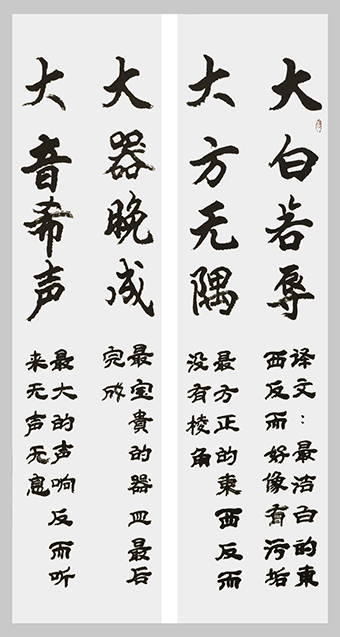 大白若辱
译文：最洁白的東
西反而好像有污垢
大方无隅
最方正的東西反而
没有棱角
大器晚成
最宝貴的器皿最后
完成
大音希声
最大的声响反而听
来无声无息